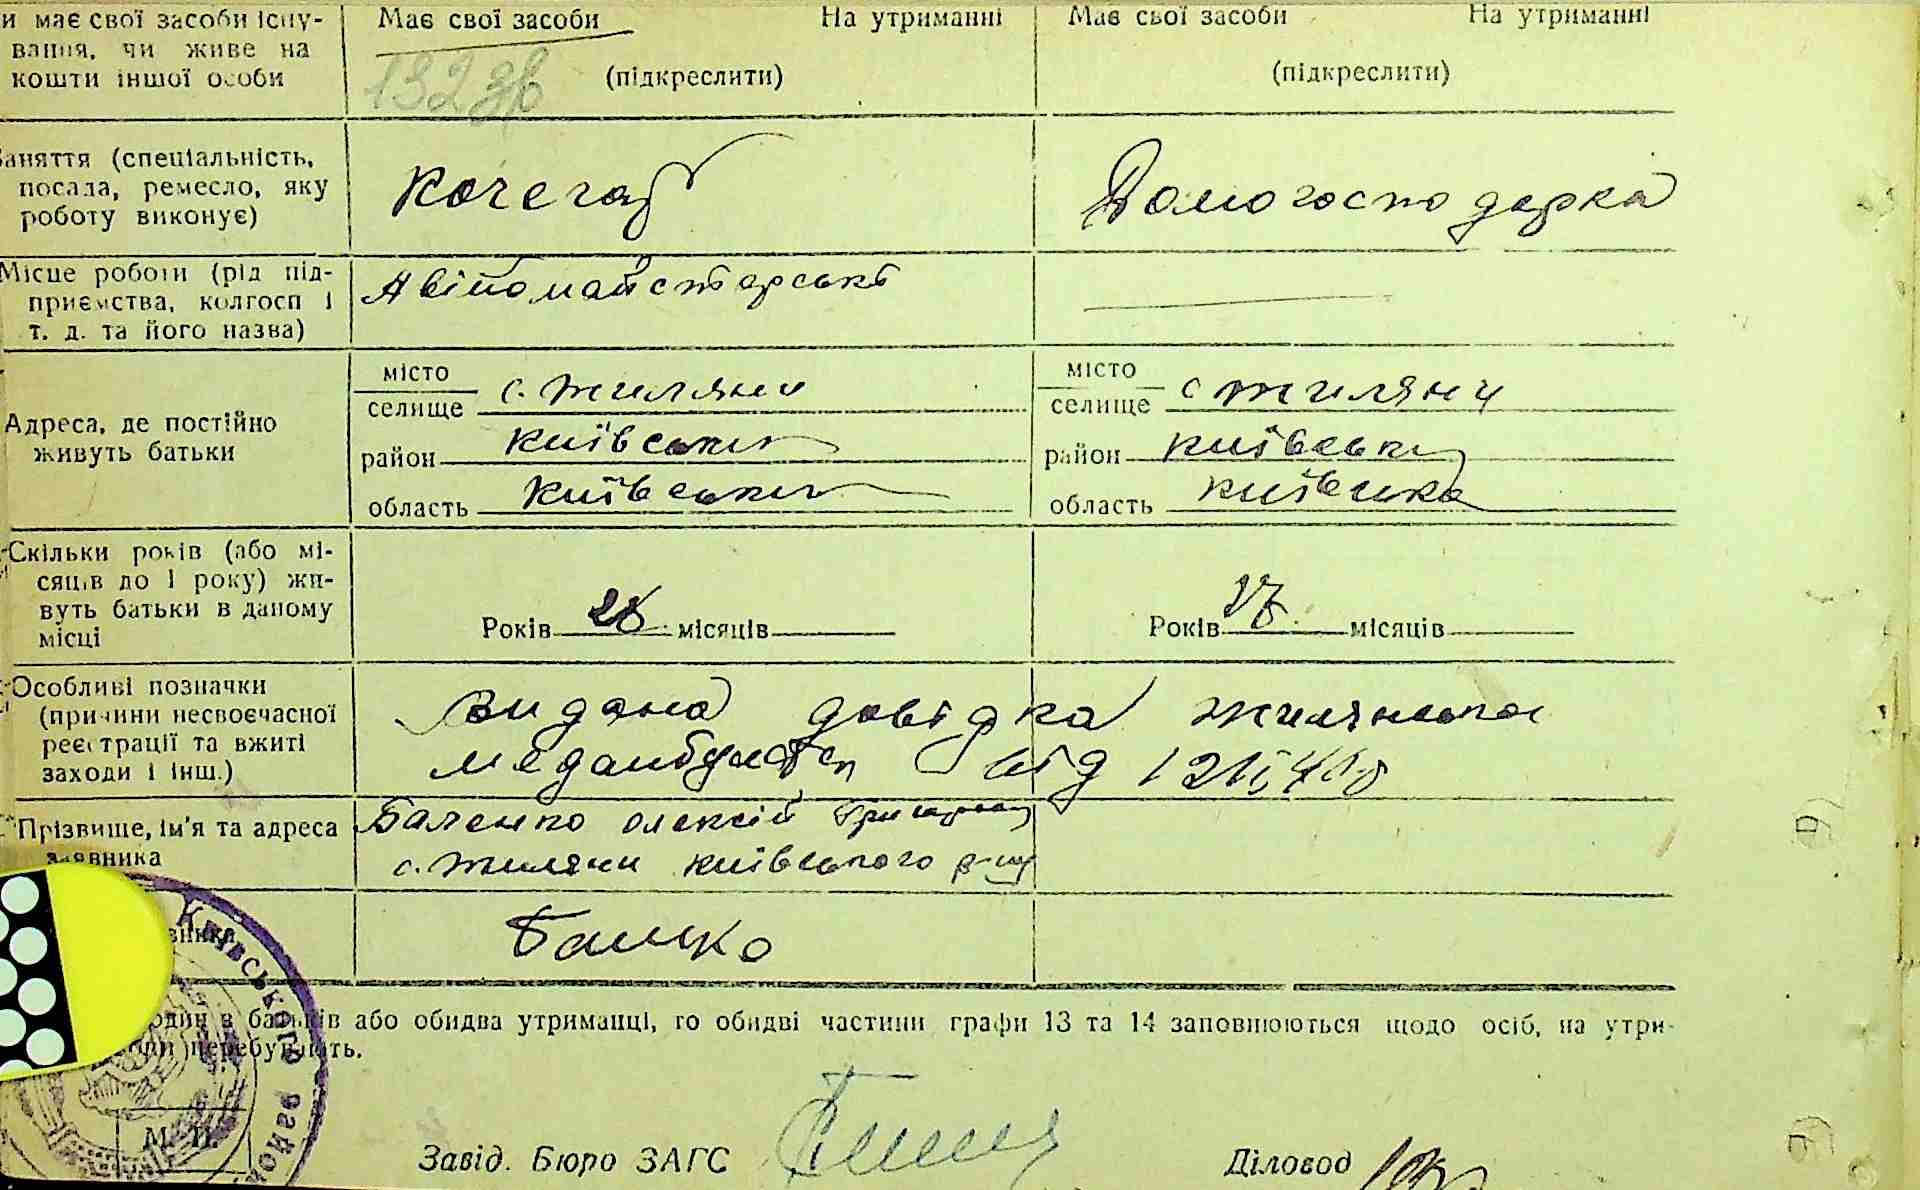 и має свої засоби існу-
вання, чи живе на
кошти іншої особи
Має свої засоби На утриманні
(підкреслити)
132
Має свої засоби На утриманні
(підкреслити)
аняття (спеціальність,
посада, ремесло, яку
роботу виконує)
Кочегар
Домогосподарка
Місце роботи (рід під-
приємства, колгосп і
т. д. та його назва)
Авіомайстерські
Адреса, де постійно
живуть батьки
місто
селище с. Жиляни
район Київський
область Київська
місто
селище с Жиляни
район Київський
область Київська
Скільки років (або мі-
сяців до 1 року) жи-
вуть батьки в даному
місці
Років 28 місяців
Років 37 місяців
Особливі позначки
(причини несвоєчасної
реєстрації та вжиті
заходи і інш.)
Видана довідка Жилянської
від
Прізвище, ім'я та адреса
заявника
Баленко Олексій
с. Жиляни Київського р-ну
Батько
один з батьків або обидва утриманці, то обидві частини графи 13 та 14 заповнюються щодо осіб, на утри-
перебувають.
Київського район
М. П.
Завід. Бюро ЗАГС
Діловод